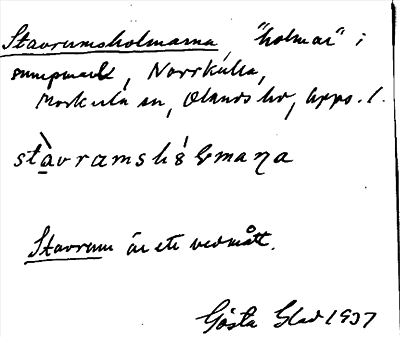 Stavrumsholmarna, "holmar" i
sumpmark, Norrkulla,
Morkarla sn, Olands hd, Upps. l.
stàvramshólmaṇa
Stavrum är ett vedmått.
Gösta Glad 1937